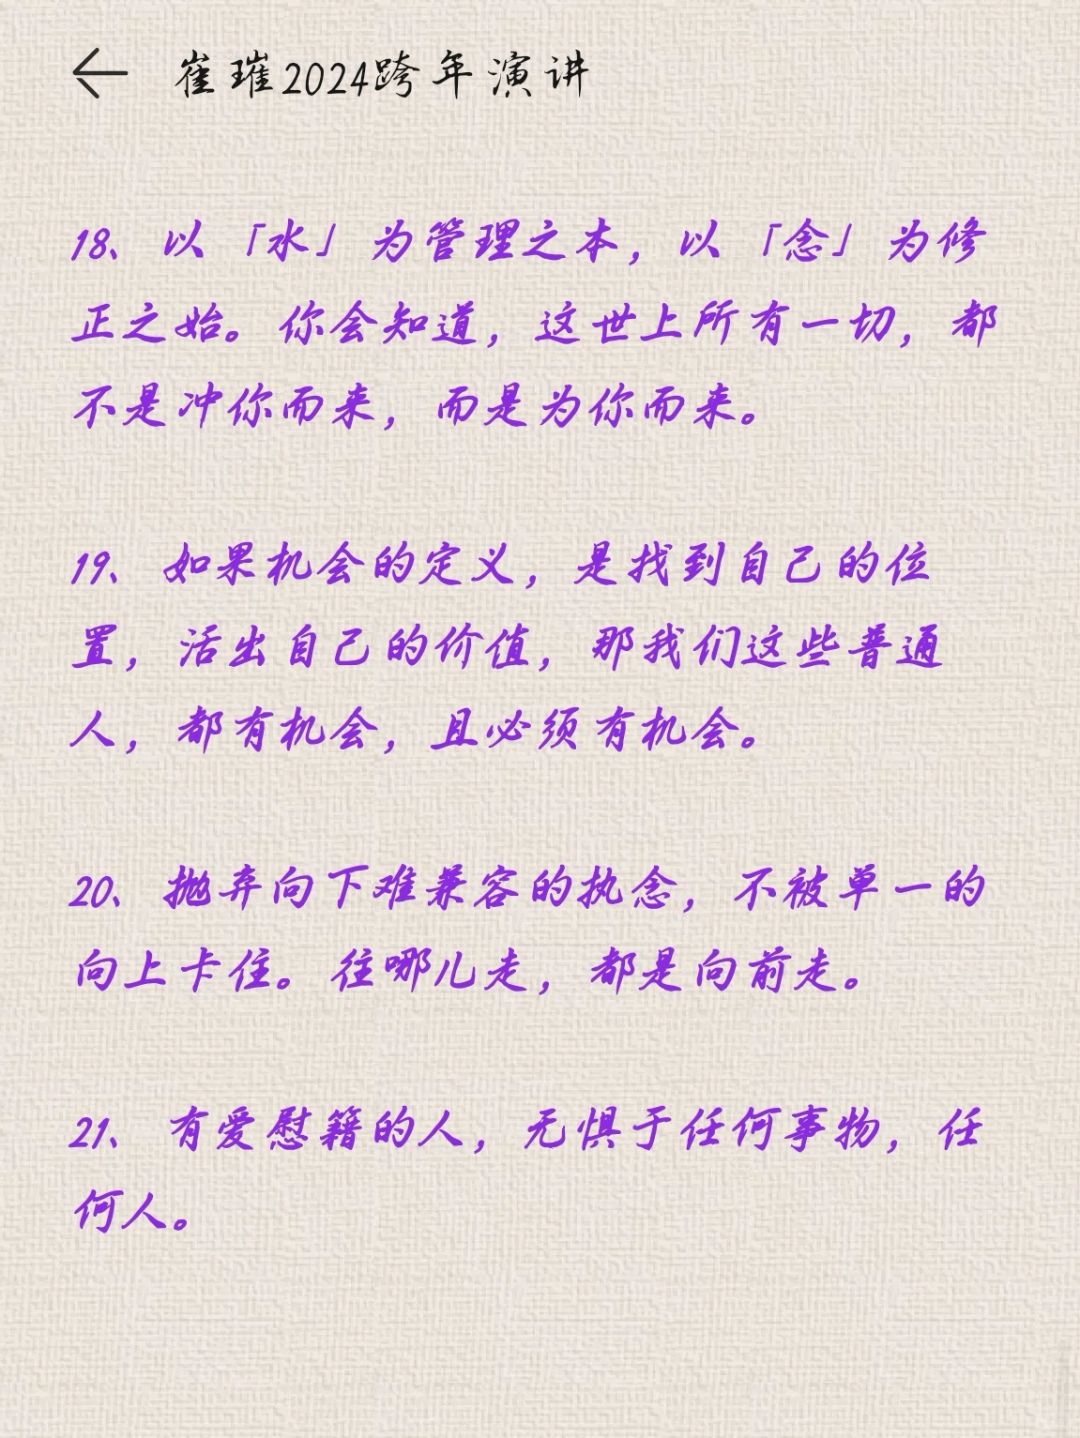 崔璀2024跨年演讲
18、以「水」为管理之本，以「念」为修
正之始。你会知道，这世上所有一切，都
不是冲你而来，而是为你而来。
19、如果机会的定义，是找到自己的位
置，活出自己的价值，那我们这些普通
人，都有机会，且必须有机会。
20、抛弃向下难兼容的执念，不被单一的
向上卡住。往哪儿走，都是向前走。
21、有爱慰籍的人，无惧于任何事物，任
何人。